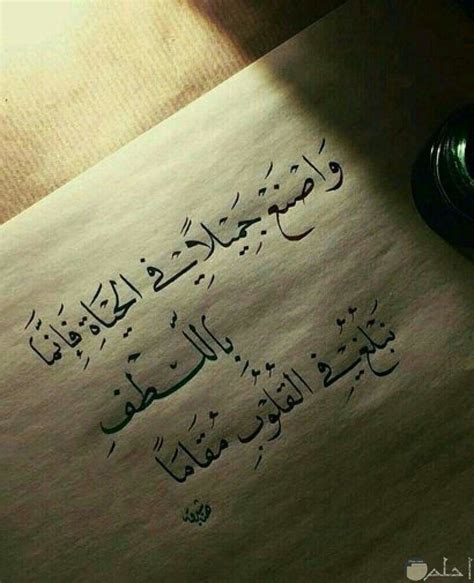 وَاصْنَعْ جَمِيْلًا فِي الْحَيَاةِ فَإِنَّمَا
بِاللُّطْفِ
نَبْلُغُ فِي الْقُلُوْبِ مُقَامَا
احلم